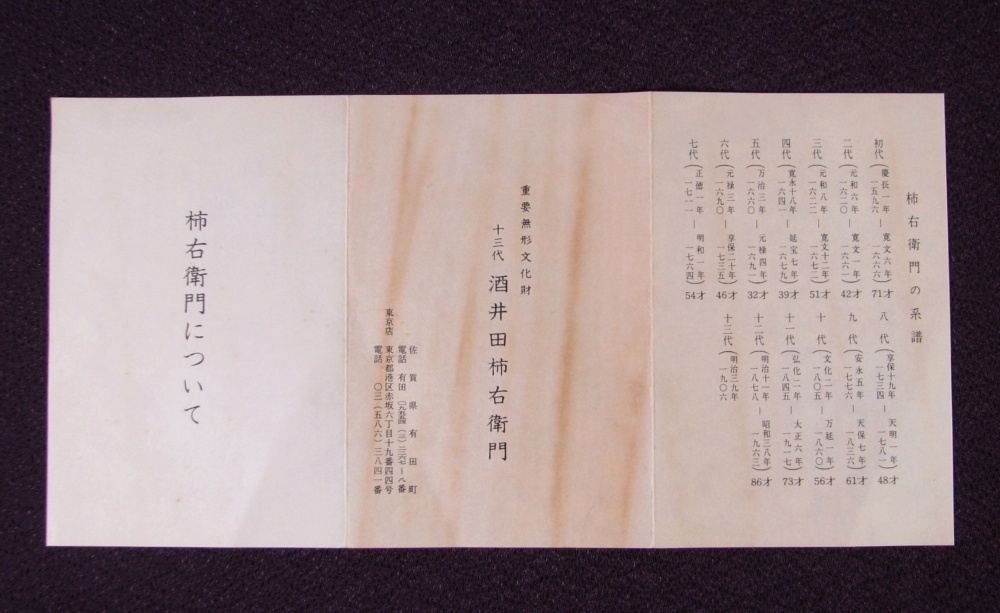 柿右衛門の系譜
初代(慶長一年 一五九六 ― 寛文六年 一六六六)71才
二代(元和六年 一六二〇 ― 寛文一年 一六六一)42才
三代(元和八年 一六二二 ― 寛文十二年 一六七二)51才
四代(寛永十八年 一六四一 ― 延宝七年 一六七九)39才
五代(万治三年 一六六〇 ― 元禄四年 一六九一)32才
六代(元禄三年 一六九〇 ― 享保二十年 一七三五)46才
七代(正徳一年 一七一一 ― 明和一年 一七六四)54才
八代(享保十九年 一七三四 ― 天明一年 一七八一)48才
九代(安永五年 一七七六 ― 天保七年 一八三六)61才
十代(文化二年 一八〇五 ― 万延一年 一八六〇)56才
十一代(弘化二年 一八四五 ― 大正六年 一九一七)73才
十二代(明治十一年 一八七八 ― 昭和三八年 一九六三)86才
十三代(明治三九年 一九〇六
重要無形文化財
十三代 酒井田柿右衛門
佐賀県有田町
電話 有田
東京店 東京都港区赤坂六丁目十九番四四号
電話 〇三(五八六)三八四一番
柿右衛門について